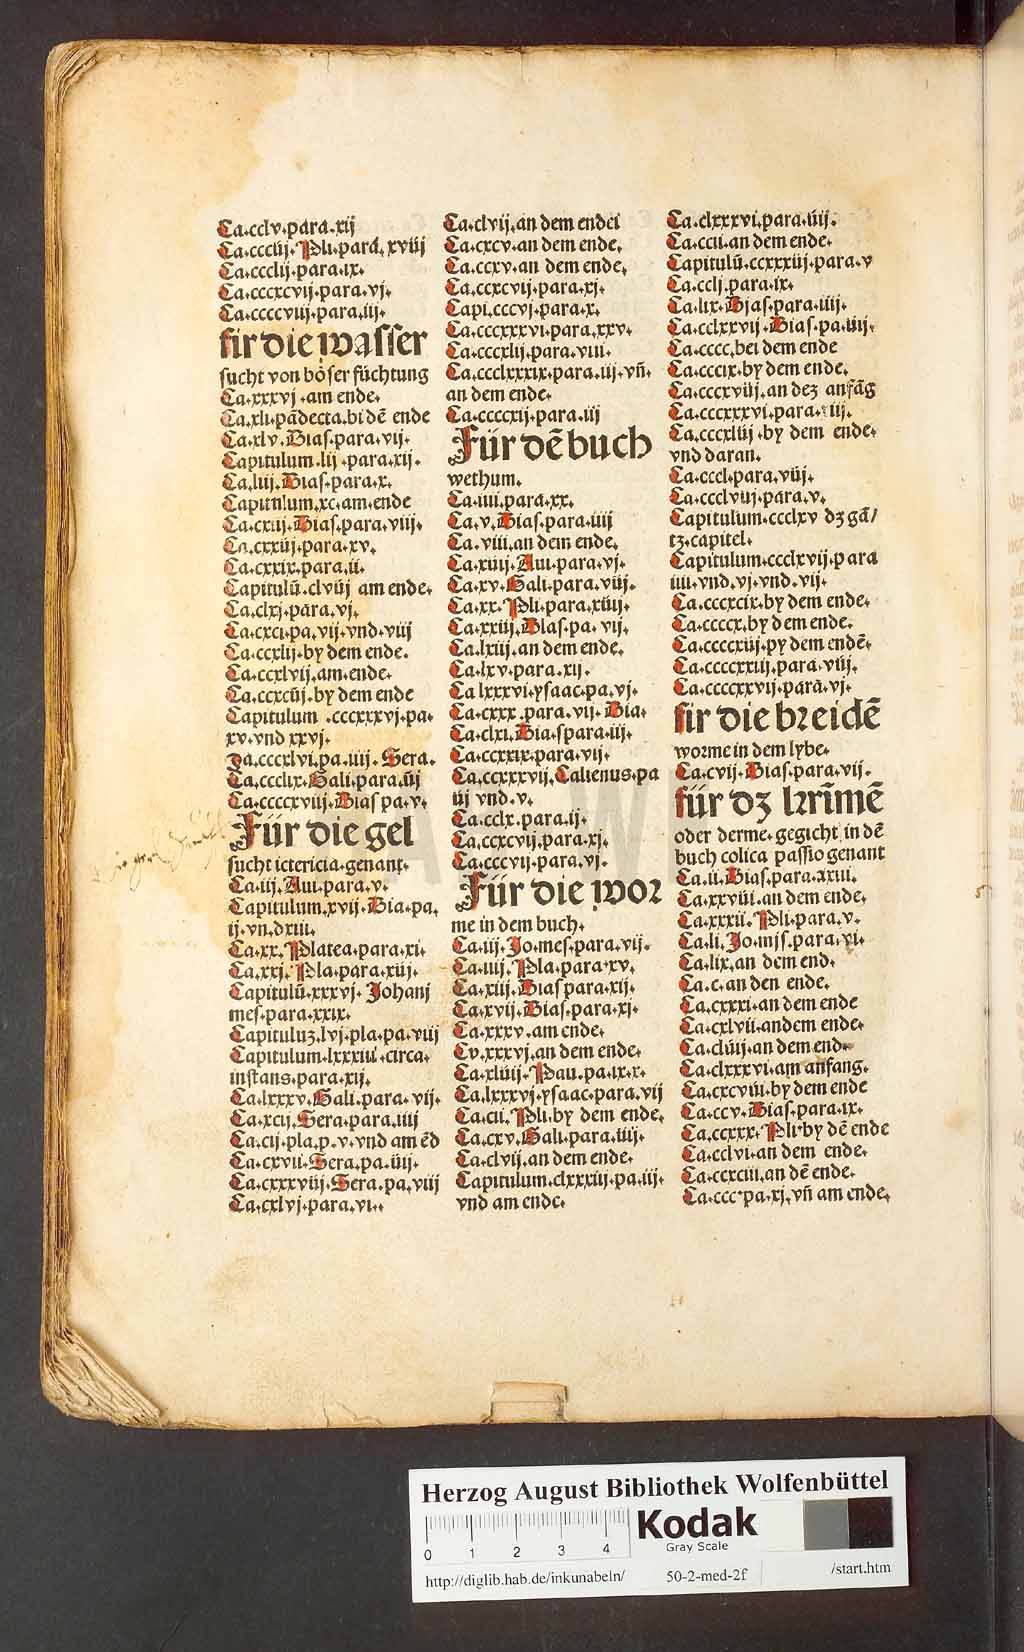 Ca.cclv.para.xij
Ca.ccciiij.Pli.para.xviij
Ca.ccclij.para.ix.
Ca.cccxcvij.para.vj.
Ca.ccccviij.para.iij.
für die wasser
sucht von böser füchtung
Ca.xxxvj.am ende.
Ca.xli.pādecta.bi dē ende
Ca.xlv.Bias.para.vij.
Capitulum.lij.para.xij.
Ca.liij.Bias.para.x.
Capitulum.xc.am.ende
Ca.cxiij.Bias.para.viij.
Ca.cxxiij.para.xv.
Ca.cxxix.para.ii.
Capitulū.clviij am ende.
Ca.clxj.para.vj.
Ca.cxci.pa.vij.vnd.viij
Ca.ccxlij.by dem ende.
Ca.ccxlvij.am.ende.
Ca.ccxciij.by dem ende
Capitulum.cccxxxvj.pa.
xv.vnd xxvj.
Ca.cccxlvi.pa.iiij.Sera.
Ca.ccclix.Gali.para.iij
Ca.ccccxviij.Bias pa.v.
Für die gel
sucht ictericia.genant.
Ca.iij.Aui.para.v.
Capitulum.xvij.Bia.pa.
ij.vn.dxiii.
Ca.xx.Platea.para.xi.
Ca.xxj.Pla.para.xiij.
Capitulū.xxxvj.Johanj
mes.para.xxix.
Capituluʒ.lvj.pla.pa.viij
Capitulum.lxxxiii.circa.
instans.para.xij.
Ca.lxxxv.Gali.para.vij.
Ca.xcij.Sera.para.iiij
Ca.cij.pla.p.v.vnd am ēd
Ca.cxvii.Sera.pa.iiij.
Ca.cxxxviij.Sera.pa.viij
Ca.cxlvj.para.vi.
Ca.clvij.an dem endei
Ca.cxcv.an dem ende.
Ca.ccxv.an dem ende.
Ca.ccxcvij.para.xj.
Capi.cccvj.para.x.
Ca.cccxxxvi.para.xxv.
Ca.cccxlij.para.viii.
Ca.ccclxxxix.para.iij.vñ.
an dem ende.
Ca.ccccxij.para.iij
Für dē buch
wethum.
Ca.iiii.para.xx.
Ca.v.Bias.para.iiij
Ca.viii.an dem ende.
Ca.xiiij.Aui.para.vj.
Ca.xv.Gali.para.viij.
Ca.xx.Pli.para.xiiij.
Ca.xxiij.Blas.pa.vij.
Ca.lxiij.an dem ende.
Ca.lxv.para.xij.
Ca lxxxvi.ysaac.pa.vj.
Ca.cxxx.para.vij.Bia.
Ca.clxi.Bia.spara.iij.
Ca.ccxxix.para.vij.
Ca.ccxxxvij.Galienus.pa
iij vnd.v.
Ca.cclx.para.ij.
Ca.ccxcvij.para.xj.
Ca.cccvij.para.vj.
Für die wor
me in dem buch.
Ca.iij.Jo.mes.para.vij.
Ca.iiij.Pla.para.xv.
Ca.xiij.Bias para.xij.
Ca.xvij.Bias.para.xj.
Ca.xxxv.am ende.
Cv.xxxvj.an dem ende.
Ca.xliiij.Pau.pa.ix.x.
Ca.lxxxvj.ysaac.para.vij
Ca.cii.Pli.by dem ende.
Ca.cxv.Gali.para.iiij.
Ca.clvij.an dem ende.
Capitulum.clxxxiij.pa.iij.
vnd am ende.
Ca.clxxxvi.para.iiij.
Ca.ccii.an dem ende.
Capitulū.ccxxxiij.para.v
Ca.cclj.para.ix.
Ca.lix.Bjas.para.iiij.
Ca.cclxxvij.Bias.pa.iiij.
Ca.cccc.bei dem ende
Ca.cccix.by dem ende.
Ca.cccxviij.an deʒ anfāg
Ca.cccxxxvi.para.iij.
Ca.cccxliij.by dem ende.
vnd daran.
Ca.cccl.para.viij.
Ca.ccclviij.para.v.
Capitulum.ccclxv dʒ gā/
tʒ.capitel.
Capitulum.ccclxvij.para
iiii.vnd.vj.vnd.vij.
Ca.cccxcix.by dem ende.
Ca.ccccx.by dem ende.
Ca.ccccxiij.py dem endē.
Ca.ccccxxiij.para.viij.
Ca.ccccxxvij.parā.vj.
für die breidē
worme in dem lybe.
Ca.cvij.Bias.para.vij.
für dʒ krīmē
oder derme.gegicht in dē
buch colica passio genant
Ca.ii.Bias.para.xxiii.
Ca.xxviii.an dem ende.
Ca.xxxii.Pli.para.v.
Ca.li.Jo.mjs.para.vi.
Ca.lix.an dem end.
Ca.c.an den ende.
Ca.cxxxi.an dem ende
Ca.cxlvii.andem ende.
Ca.cliiij.an dem end.
Ca.clxxxvi.am anfang.
Ca.cxcviii.by dem ende
Ca.ccv.Bias.para.ix.
Ca.ccxxx.Pli.by dē ende
Ca.cclvi.an dem ende.
Ca.ccxciii.an dē ende.
Ca.ccc.pa.xj.vñ am ende.
Herzog August Bibliothek Wolfenbüttel
0 1 2 3 4
Kodak
Gray Scale
http://diglib.hab.de/inkunabeln/ 50-2-med-2f /start.htm